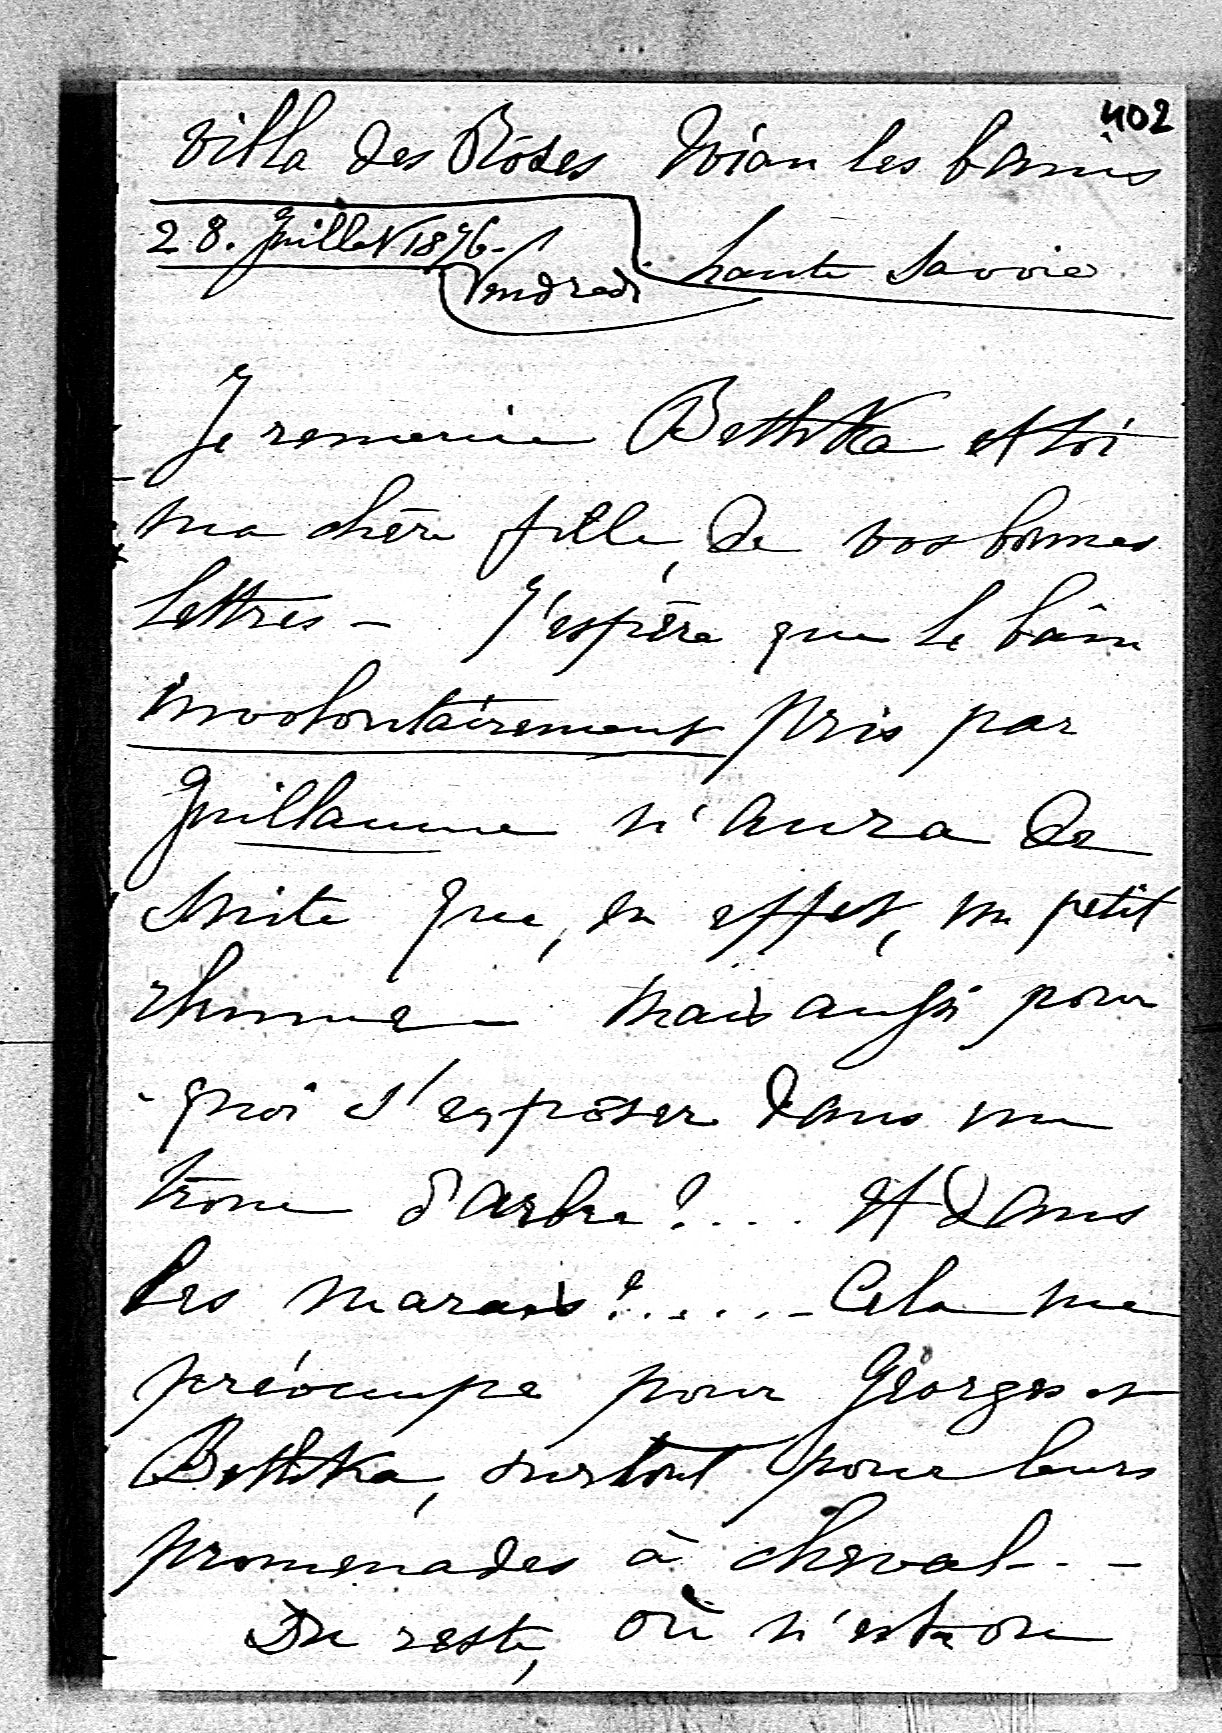 402
villa des Roses Evian les bains
28. Juillet 1876 -
Vendredi
haute Savoie
Je remercie Bethka et toi
ma chère fille, de vos bonnes
lettres - J'espère que le bain
involontairement pris par
Guillaume n'aura de
suite que, en effet, un petit
rhume - Mais aussi pour
-quoi s'exposer dans un
tronc d'arbre ? .... Et dans
les marais ? ..... - Cela me
préoccupe pour Georges et
Bethka, surtout pour leurs
promenades à cheval - . -
Du reste, où n'est on